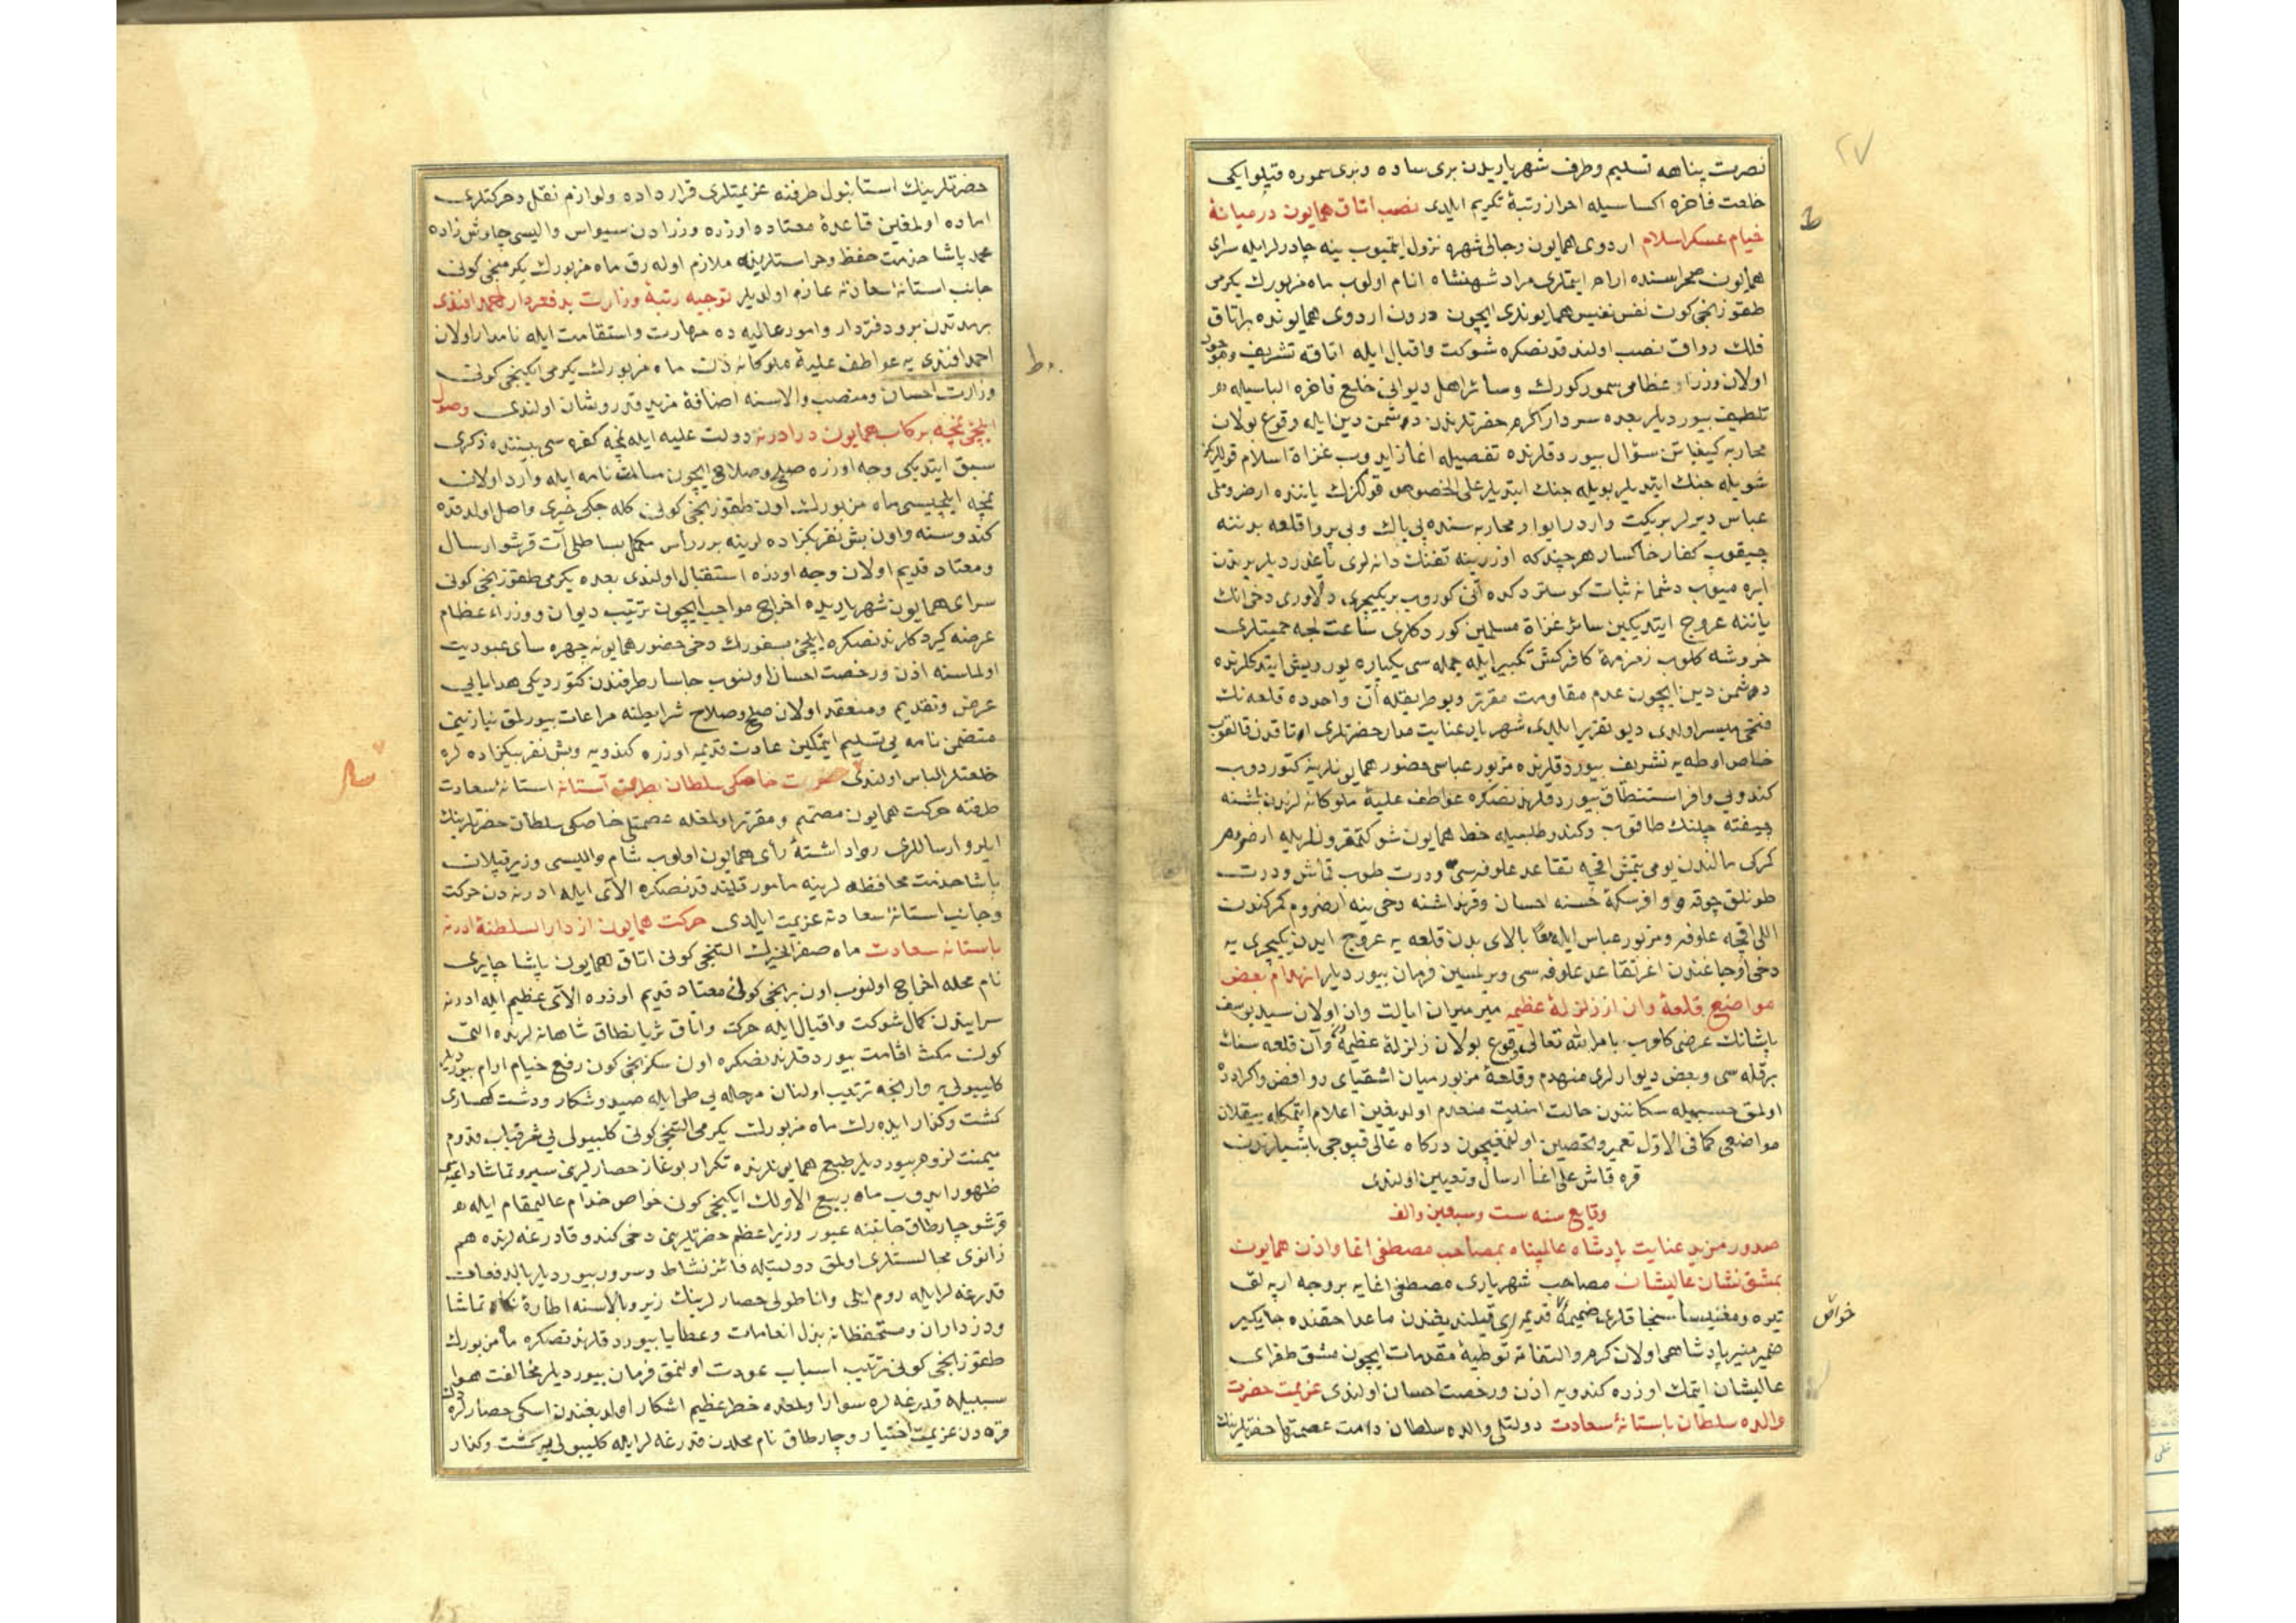 ٢٧
نصرت پناهه تسلیم وطرف شهریاریدن بری ساده وبری سموره قپلو ایکی
خلعت فاخره اکساسیله احراز رتبۀ تکریم ایلدی نصب اتاق همایون درمیانۀ
خیام عسکر اسلام اردوی همایون وجالی شهره نزول ایتمیوب ینه چادرلر ایله سرای
همایون صحراسنده ارام ایتملری مراد شهنشاه انام اولوب ماه مزبورك یکرمی
طقوزنجی کونی نفس نفیس همایوندی ایچون درون اردوی همایونده براتاق
فلك رواق نصب اولندقدنصکره شوکت واقبال ایله اتاقه تشریف وموجود
اولان وزراء عظامی سمور کورك وسائر اهل دیوانی خلع فاخره الباسیله
تلطیف بیوردیلر بعده سردار اکرم حضرتلرندن دوشمن دین ایله وقوع بولان
محاربه کیفیاتن سؤال بیوردقلرنده تفصیله اغاز ایدوب غزاة اسلام قوللریکز
شویله جنك ایتدیلر بویله جنك ایتدیلر علی الخصوص قولکزك یاننده ارضروملی
عباس دیرلر بر یکت واردر ایوار محاربه سنده بی باك وبی پروا قلعه بدننه
چیقوب کفار خاکسار هرچندکه اوزرینه تفنك دانه لری یاغدردیلر یرندن
ایرلمیوب دشمانه ثبات کوستردکده آنی کوروب بر یکیچری دلاوری دخی انك
یاننه عروج ایتدیکین سائر غزاة مسلمین کوردکلری ساعت لجه حمیتلری
خروشه کلوب زمزمۀ کافرکش تکبیر ایله جمله سی یکباره یوریش ایتدکلرنده
دوشمن دین ایچون عدم مقاومت مقرر وبو طریقله آن واحدده قلعه نك
فتحی میسر اولدی دیو تقریر ایلدی شهریار عنایت مدار حضرتلری اوتاقدن قالقوب
خاص اوطه یه تشریف بیوردقلرنده مزبور عباسی حضور همایونلرینه کتوردوب
کندویی وافر استنطاق بیوردقلرندنصکره عواطف علیۀ ملوکانه لرندن باشنه
چیفته چلنك طاقوب وکندو طلبیله خط همایون شوکتمقرونلریله ارضروم
کمرکی مالندن یومی یتمش اقچه تقاعد علوفه سی ودرت طوب قماش ودرت
طونلق چوقه ووافر سکۀ حسنه احسان وقرنداشنه دخی ینه ارضروم کمرکندن
اللی اقچه علوفه ومزبور عباس ایله معًا بالای بدن قلعه یه عروج ایدن یکیچری یه
دخی اوجاغندن اغر تقاعد علوفه سی ویرلمسین فرمان بیوردیلر انهدام بعض
مواضع قلعۀ وان از زلزلۀ عظیمه میرمیران ایالت وان اولان سید یوسف
پاشانك عرضی کلوب بامر الله تعالی وقوع بولان زلزلۀ عظیمه دن وآن قلعه سنك
برقله سی وبعض دیوارلری منهدم وقلعۀ مزبور میان اشقیای روافض واکرادده
اولمق حسبیله سکانندن حالت امنیت منعدم اولدیغین اعلام ایتمکله ییقلان
مواضعی کما فی الاوّل تعمیر وتحصین اولنمغیچون درکاه عالی قپوجی باشیلرندن
قره قاش علی اغا ارسال وتعیین اولندی
وقایع سنه ست وسبعین والف
صدور مزید عنایت پادشاه عالمپناه بمصاحب مصطفی اغا واذن همایون
بمشق نشان عالیشان مصاحب شهریاری مصطفی اغایه بر وجه ارپه لق
تیره ومغنیسا سنجاقلری ضمیمۀ قدیمه لری قیلندیغندن ماعدا حقنده جایکیر
ضمیر منیر پادشاهی اولان کرم والتفاته توطیۀ مقدمات ایچون مشق طغرای
عالیشان ایتمك اوزره کندویه اذن ورخصت احسان اولندی عزیمت حضرت
والده سلطان باستانۀ سعادت دولتلو والده سلطان دامت عصمتها حضرتلرینك
خواص
حضرتلرینك استانبول طرفنه عزیمتلری قرار داده ولوازم نقل وحرکتلری
اماده اولمغین قاعدۀ معتاده اوزره وزرادن سیواس والیسی چاوش زاده
محمد پاشا خدمت حفظ وحراستلرینه ملازم اوله رق ماه مزبورك یکرمنجی کونی
جانب استانۀ سعادته عازم اولدیلر توجیه رتبۀ وزارت بدفتردار احمد افندی
برمدتدن برو دفتردار وامور عالیه ده مهارت واستقامت ایله نامدار اولان
احمد افندی یه عواطف علیۀ ملوکانه دن ماه مزبورك یکرمی ایکینجی کونی
وزارت احسان ومنصب والاسنه اضافۀ مزید قدر وشان اولندی وصول
ایلچئ نمچه برکاب همایون در ادرنه دولت علیه ایله نمچه کفره سی بیننده ذکری
سبق ایتدیکی وجه اوزره صلح وصلاح ایچون مسالمت نامه ایله وارد اولان
نمچه ایلچیسی ماه مزبورك اون طقوزنجی کونی کله جکی خبری واصل اولدقده
کندوسنه واون بش نفر بکزاده لرینه برر رأس مکمل بساطلی آت قرشو ارسال
ومعتاد قدیم اولان وجه اوزره استقبال اولندی بعده یکرمی طقوزنجی کونی
سرای همایون شهریاریده اخراج مواجب ایچون ترتیب دیوان ووزراء عظام
عرضه کیردکلرندنصکره ایلچئ بسفورك دخی حضور همایونه چهره سای عبودیت
اولماسنه اذن ورخصت احسان اولنوب چاسار طرفندن کتوردیکی هدایایی
عرض وتقدیم ومنعقد اولان صلح وصلاح شرایطنه مراعات بیورلمق نیازینی
متضمن نامه یی تسلیم ایتمکین عادت قدیمه اوزره کندویه وبش نفر بیکزاده لره
خلعتلر الباس اولندی حرکت خاصکی سلطان بطرف آستانه استانۀ سعادت
طرفنه حرکت همایون مصمم ومقرر اولمغله عصمتلو خاصکی سلطان حضرتلرینك
ایلرو ارساللری رواد اشتۀ رأی همایون اولوب شام والیسی وزیر قپلان
پاشا خدمت محافظه لرینه مأمور قلیندقدنصکره الای ایله ادرنه دن حرکت
وجانب استانۀ سعادته عزیمت ایلدی حرکت همایون از دار السلطنۀ ادرنه
باستانه سعادت ماه صفر الخیرك التنجی کونی اتاق همایون پاشا چایری
نام محله اخراج اولنوب اون برنجی کونی معتاد قدیم اوزره الای عظیم ایله ادرنه
سرایندن کمال شوکت واقبال ایله حرکت واتاق ثریا نطاق شاهانه لرنده التی
کون مکث اقامت بیوردقلرندنصکره اون سکزنجی کون رفع خیام ارام بیوردیلر
کلیبولی یه وارنجه ترتیب اولنان مرحله یی طی ایله صید وشکار ودشت کهساری
کشت وکذار ایدرك ماه مزبورك یکرمی التنجی کونی کلیبولی یی شرفیاب قدوم
میمنت لزوم بیوردیلر طبع همایونلرنده تکرار بوغاز حصارلرینی سیر وتماشا داعیه سی
ظهور ایدوب ماه ربیع الاولك ایکنجی کون خواص خدام عالیمقام ایله
قرشو چارطاق جانبنه عبور وزیراعظم حضرتلرینی دخی کندو قادرغه لرنده هم
زانوی مجالستلری اولمق دولتیله فائز نشاط وسرور بیوردیلر بالدفعات
قدرغه لر ایله روم ایلی واناطولی حصارلرینك زیر وبالاسنه اطارۀ نکاه تماشا
ودزداران ومستحفظانه بذل انعامات وعطایا بیوردقلرندنصکره ماه مزبورك
طقوزنجی کونی ترتیب اسباب عودت اولنمق فرمان بیوردیلر مخالفت هوا
سببیله قدرغه لره سوار اولمقده خطر عظیم اشکار اولدیغندن اسکی حصارلردن
قره دن عزیمت اختیار وچارطاق نام محلدن قدرغه لر ایله کلیبولی یه کشت وکذار